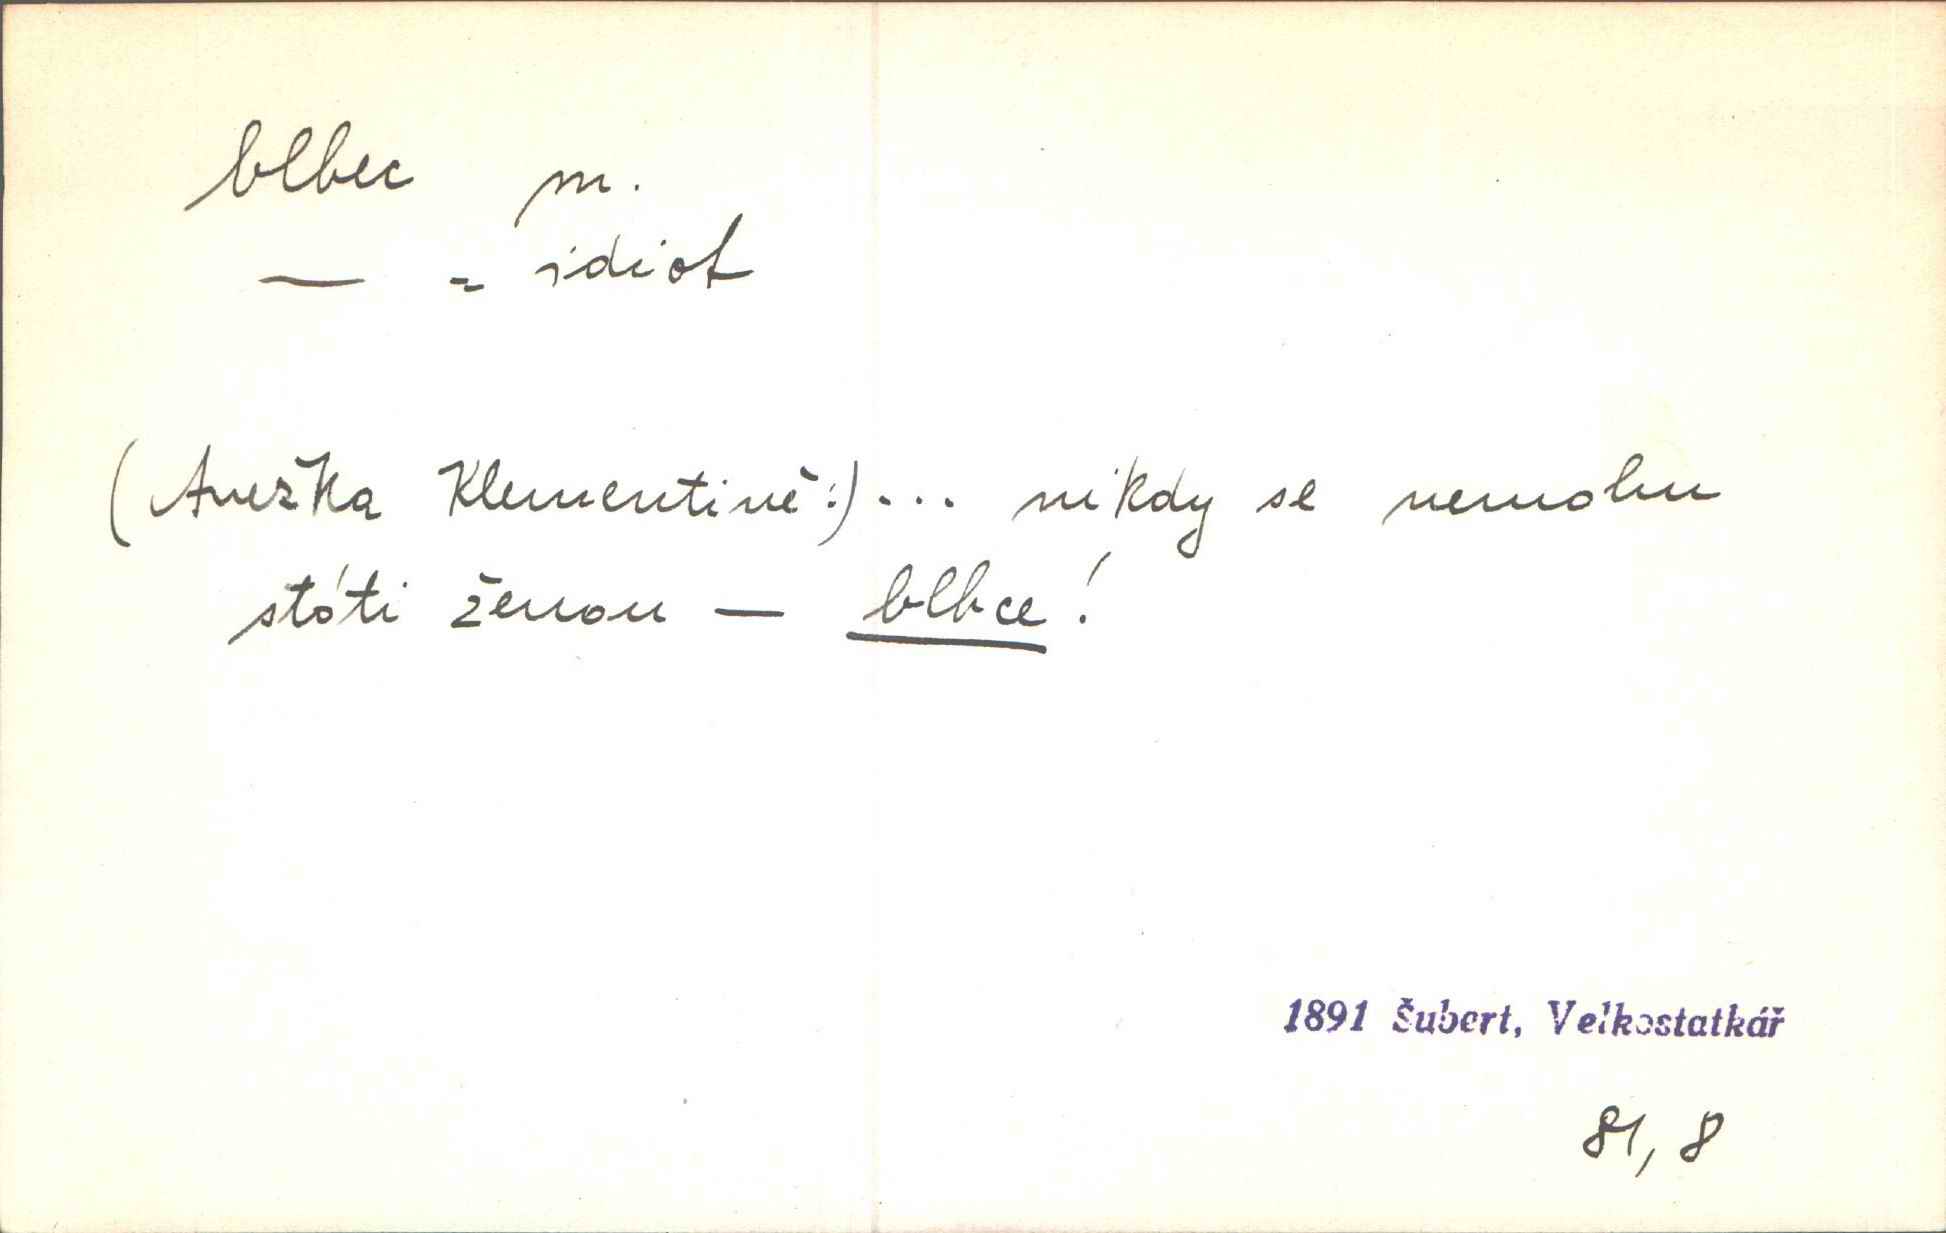 blbec m.
— = idiot
(Anežka Klementině:) ... nikdy se nemohu
státi ženou — blbce!
1891 Šubert, Velkostatkář
81, 8